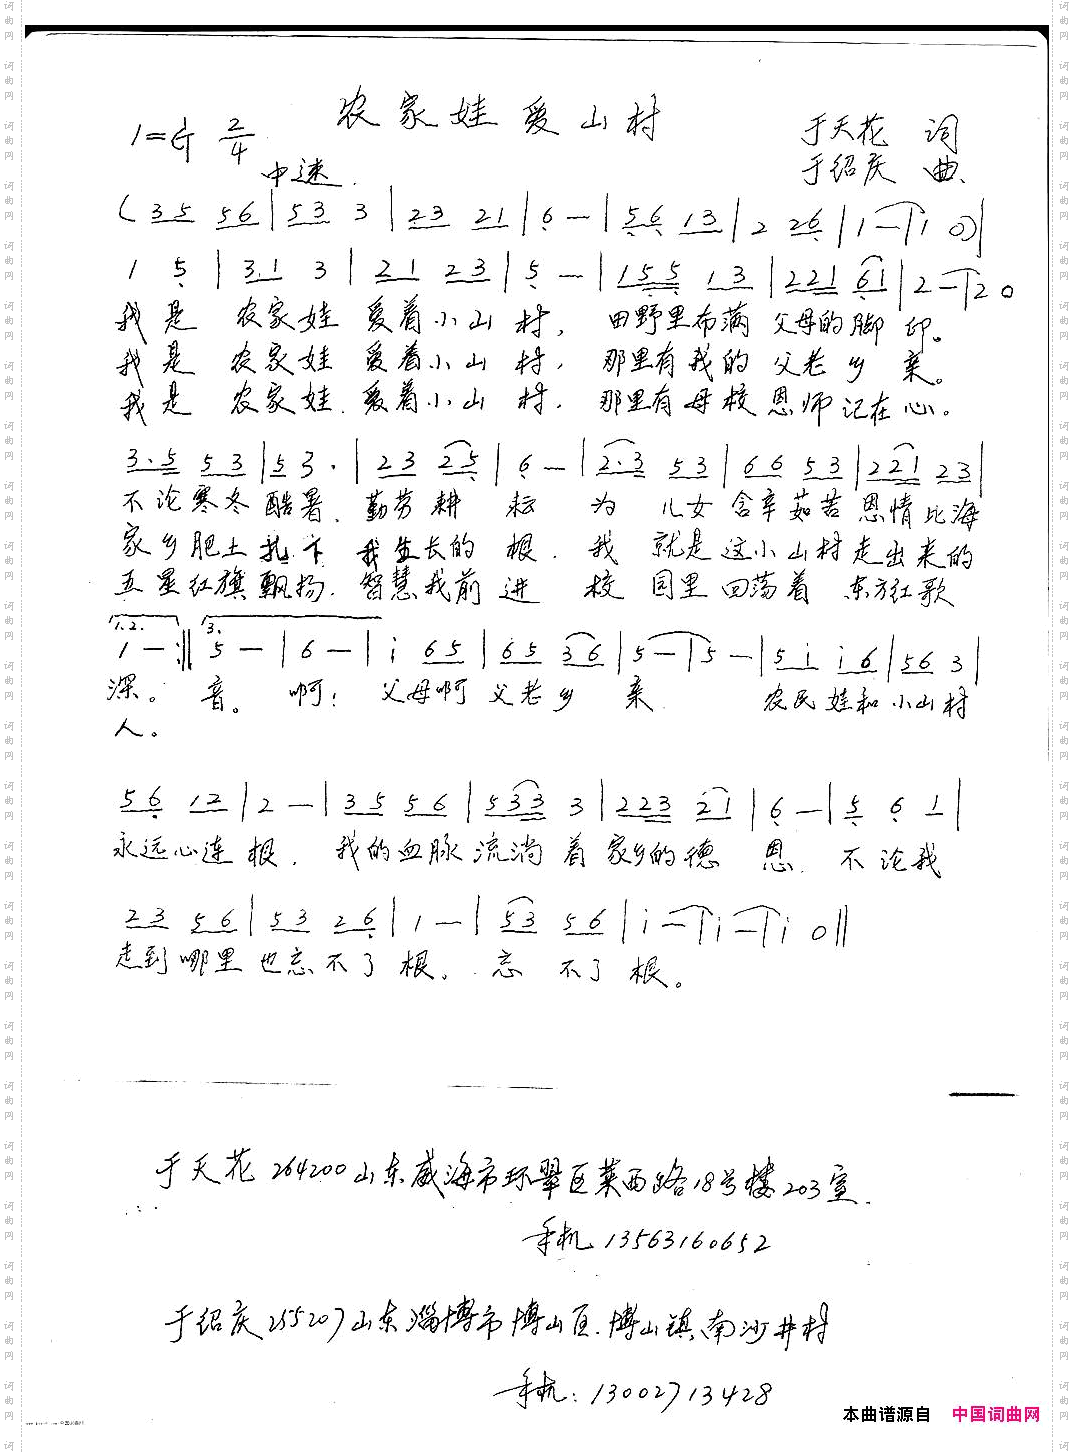 农家娃爱山村
1=G 2/4
中速
于天花 词
于绍庆 曲
(3 5 5 6|5 3 3|2 3 2 1|6 —|5 6 1 3|2 2 6|1 —|1 0)|
1 5|3·1 3|2 1 2 3|5 —|1 5 5 1 3|2 2 1 6 1|2 —|2 0
我是 农家娃 爱着小山 村, 田野里布满 父母的脚 印。
我是 农家娃 爱着小山 村, 那里有我的 父老乡 亲。
我是 农家娃 爱着小山 村, 那里有母校恩师记在心。
3·5 5 3|5 3·|2 3 2 5|6 —|2·3 5 3|6 6 5 3|2 2 1 2 3|
不论寒冬酷暑 勤劳耕 耘 为 儿女含辛茹苦恩情比海
家乡肥土扎下 我生长的 根. 我 就是这小山村走出来的
五星红旗飘扬. 智慧我前 进 校 园里回荡着 东方红歌
1.2. 3.
1 —:‖5 —|6 —|i 6 5|6 5 3 6|5 —|5 —|5 i i 6|5 6 3|
深。 音。 啊! 父母啊 父老乡 亲 农民娃和小山村
人。
5 6 1 2|2 —|3 5 5 6|5 3 3 3|2 2 3 2 1|6 —|5 6 1|
永远心连 根. 我的血脉流淌着家乡的德 恩. 不论我
2 3 5 6|5 3 2 6|1 —|5 3 5 6|i —|i —|i 0‖
走到哪里也忘不了根。 忘 不了根。
于天花 264200 山东威海市环翠区莱西路18号楼203室.
手机 13563160652
于绍庆 255207 山东淄博市博山区.博山镇南沙井村
手机: 13002713428
本曲谱源自 中国词曲网